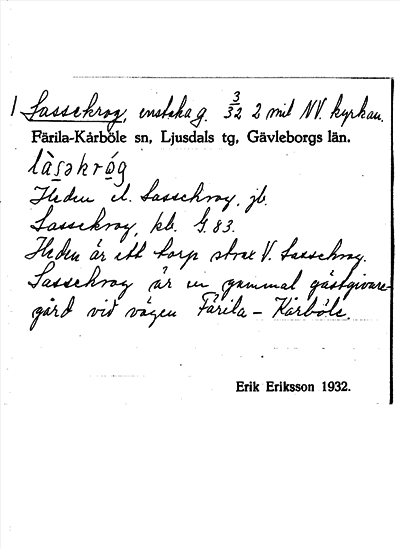 1 Lassekrog, enstaka g. 3/32 2 mil NV. kyrkan.
Färila-Kårböle sn, Ljusdals tg, Gävleborgs län.
làsəkróg
Heden el. Lassekrog, jb.
Lassekrog, kb. G. 83.
Heden är ett torp strax V. Lassekrog.
Lassekrog är en gammal gästgivare-
gård vid vägen Färila – Kårböle.
Erik Eriksson 1932.